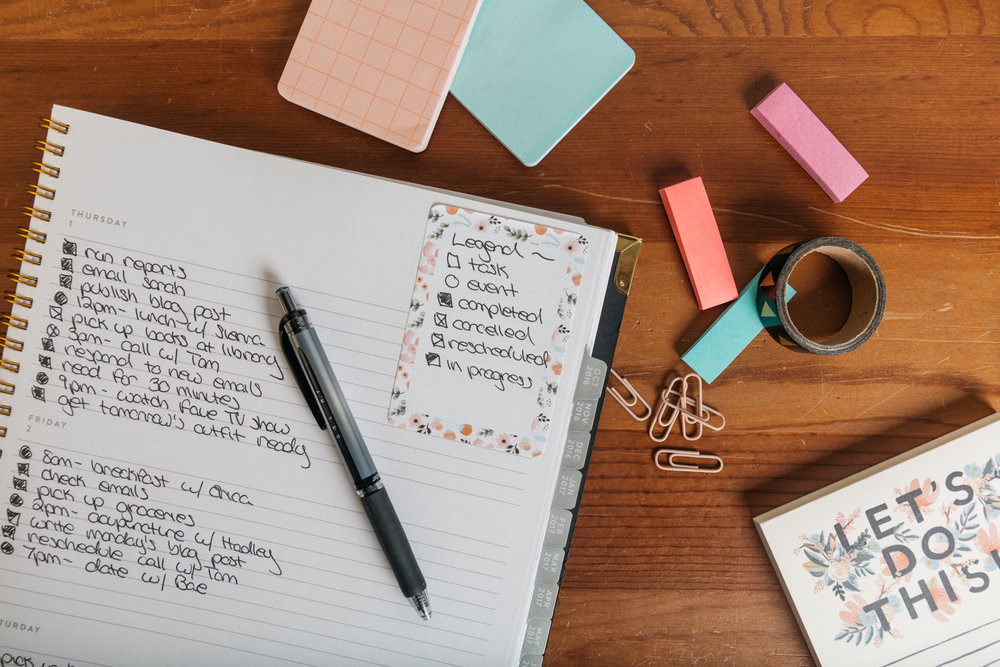 THURSDAY
1
run reports
email sarah
publish blog post
12pm- lunch w/ Sienna
pick up books at library
3pm- call w/ Tom
respond to new emails
read for 30 minutes
9pm- watch fave TV show
get tomorrow's outfit ready
FRIDAY
2
8am- breakfast w/ Erica
check emails
pick up groceries
2pm- acupuncture w/ Hadley
write monday's blog post
reschedule call w/ Tom
7pm- date w/ Bae
TURDAY
pick up
Legend ~
task
event
completed
cancelled
rescheduled
in progress
OCT 2016
NOV 2016
DEC 2016
JAN 2017
FEB 2017
MAR 2017
APR 2017
MAY 2017
LET'S
DO
THIS